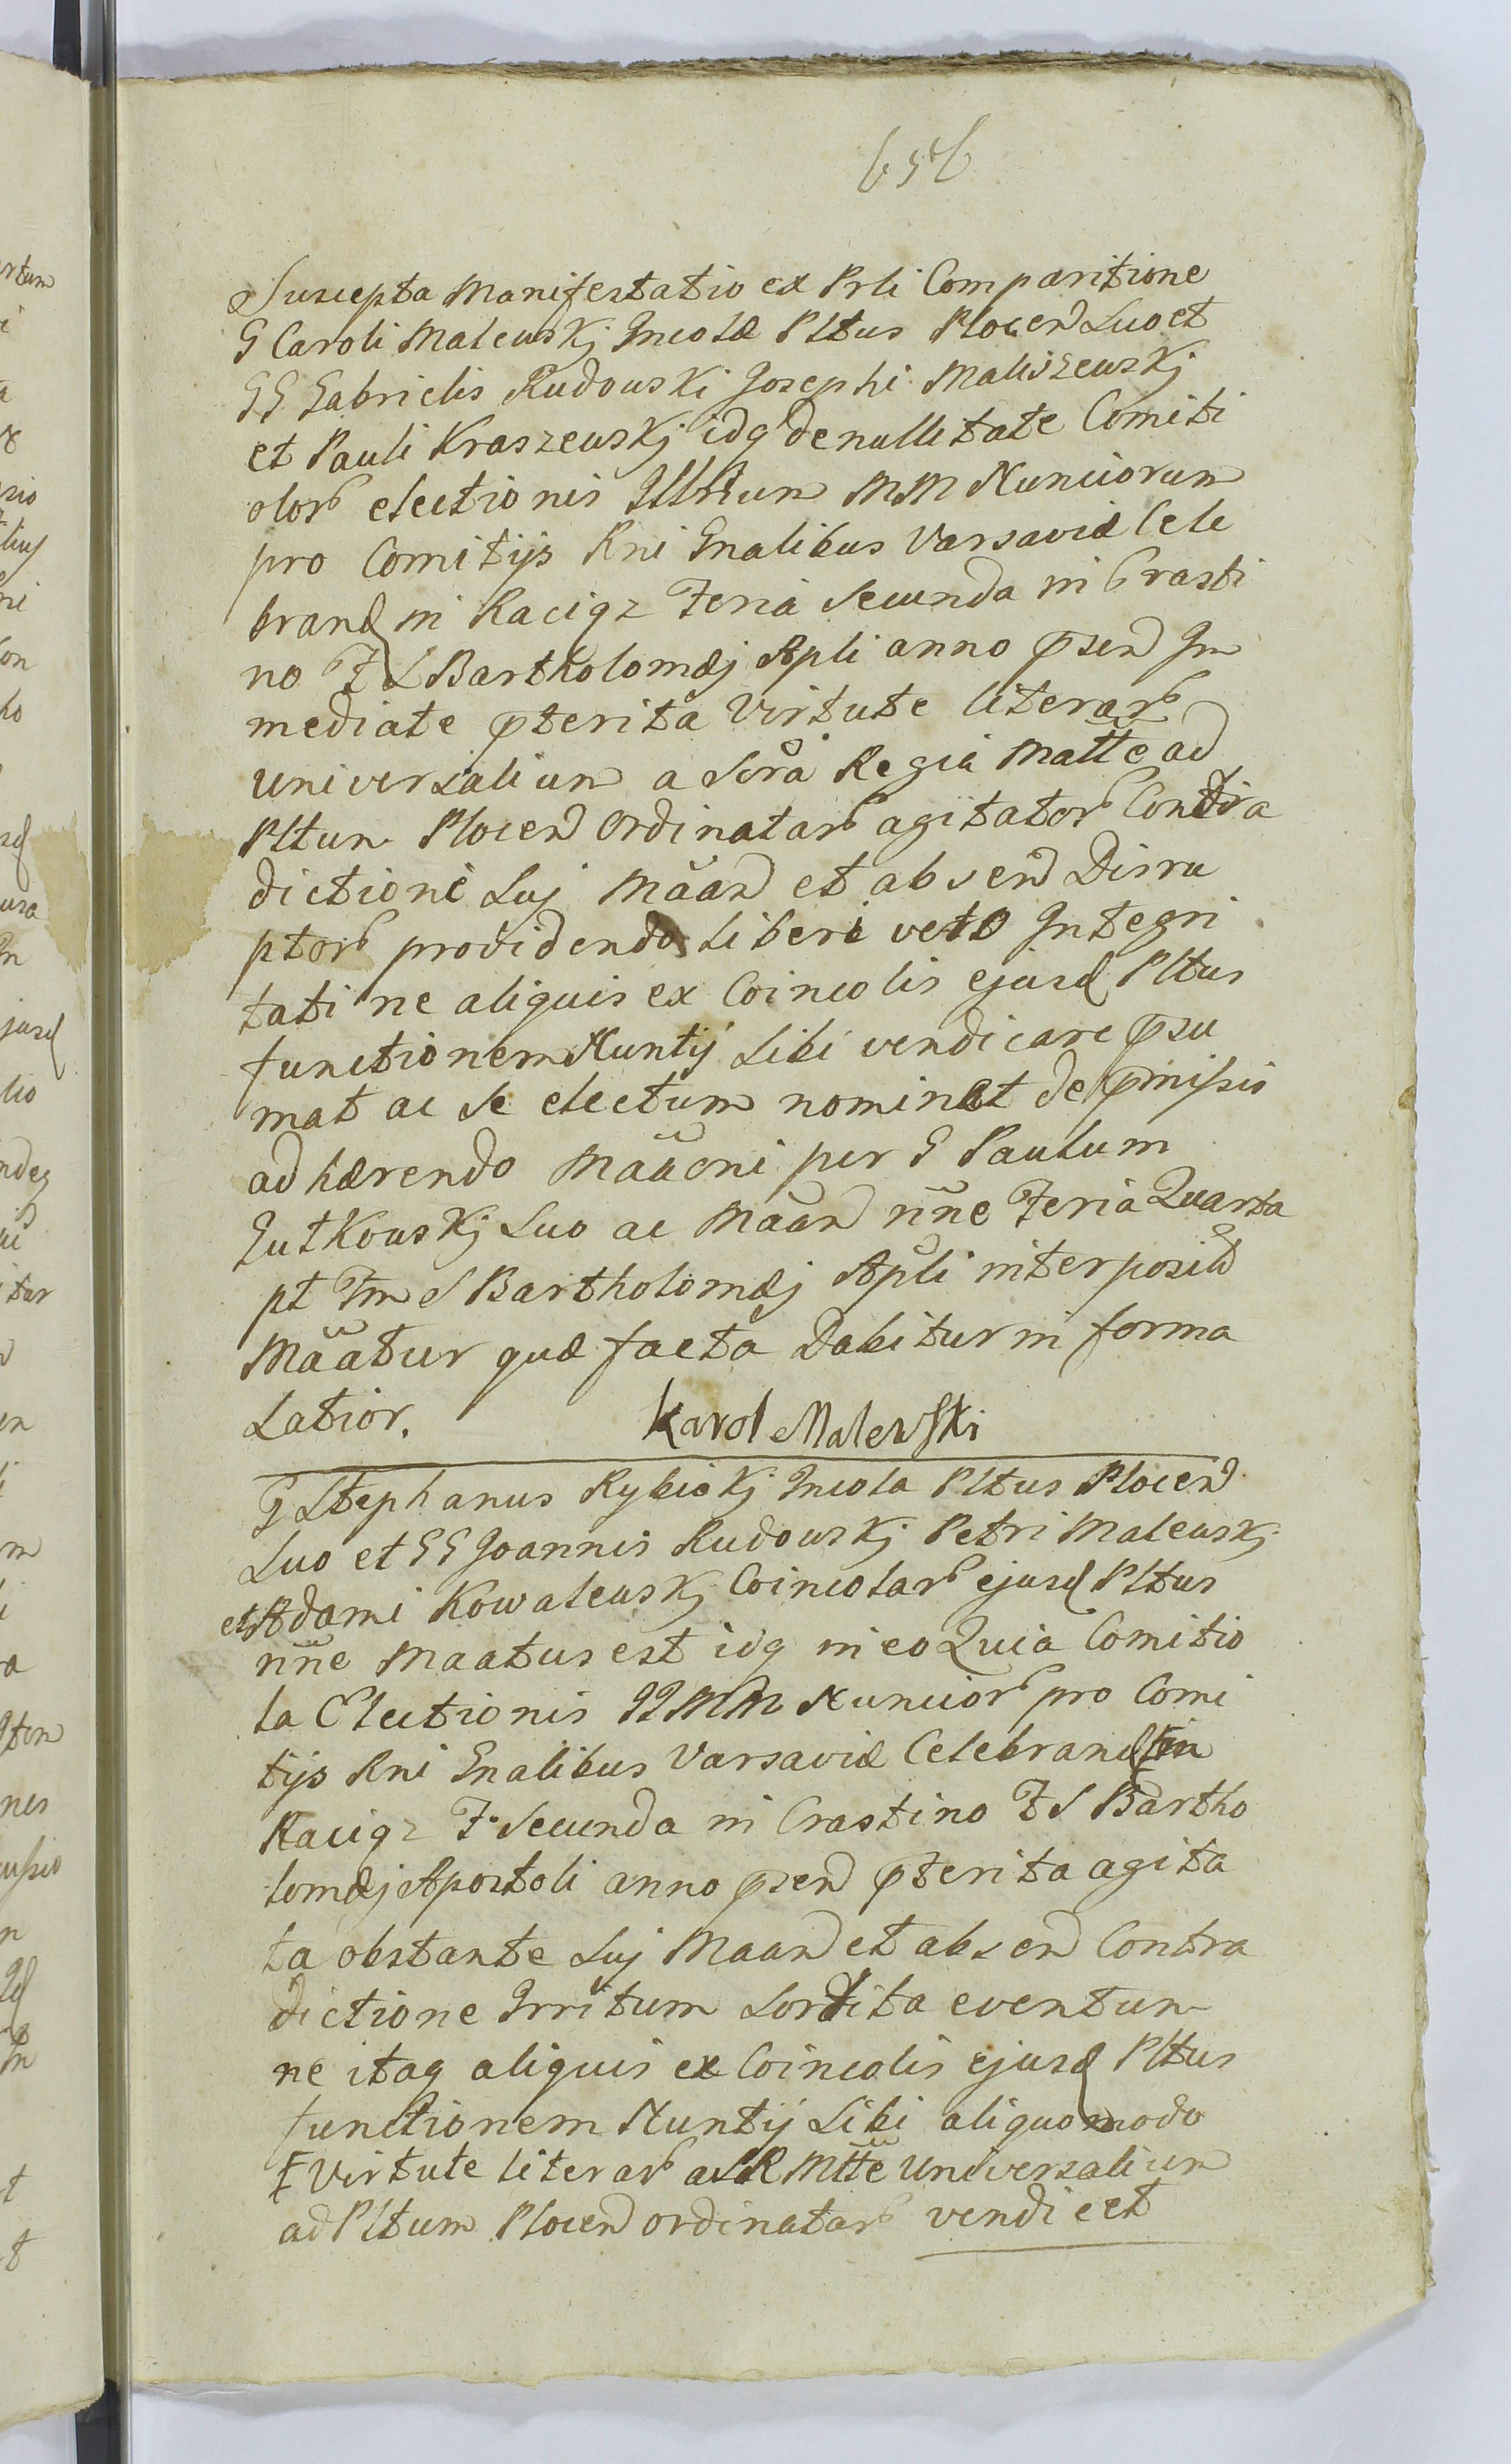 656
Suscepta Manifestatio ex Prli Comparitione
G Caroli Malewskj Incolæ Pltus Plocen Suo et
GG Gabrielis Rudowski Josephi Maliszewskj
et Pauli Kraszewskj idq de nullitate Comiti
olor electionis Illrium MM Nunciorum
pro Comitijs Rni Gnalibus Varsaviæ Cele
brand in Raciąz Feria Secunda in Crasti
no F S Bartholomæj Apli anno psen Im
mediate pterita Virtute literar
universalium a Sera Regia Matte ad
Pltum Plocen ordinatar agitator Contra
dictione Suj Maan et absen Disru
ptor providendo liberi veto Integri
tati ne aliquis ex Coincolis ejusd Pltus
functionem Nuntij Sibi vendicare psu
mat ac se electum nominet de pmissis
adhærendo Maaoni per G Paulum
Gutkowskj Suo ac Maan nne Feria Quarta
pt Fm S Bartholomæj Apli interposit
Maatur quæ facta Dabitur in forma
Latior. Karol Malewski
G Stephanus Rybickj Incola Pltus Plocen
Suo et GG Joannis Rudowskj Petri Malewskj
et Adami Kowalewskj Coincolar ejusd Pltus
nne Maatus est idq in eo Quia Comitio
la Electionis II MM Nuncior pro Comi
tijs Rni Gnalibus Varsaviæ Celebrand in
Raciąz F Secunda in Crastino F S Bartho
lomæj Apostoli anno psen pterita agita
ta obstante Suj Maan et absen Contra
dictione Irritum Sortita eventum
ne itaq aliquis ex Coincolis ejusd Pltus
functionem Nuntij Sibi aliquomodo
Virtute literar a S R Mtte Universalium
ad Pltum Plocen ordinatar vendicet